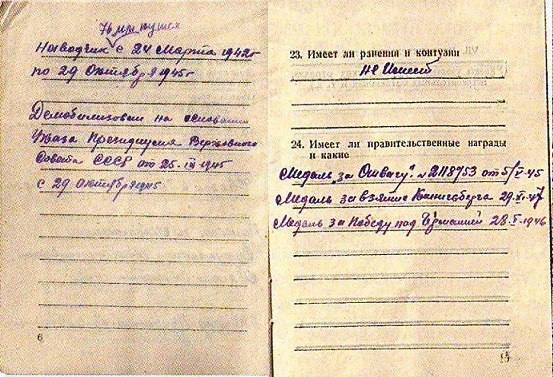 76 мм пушек
Наводчик с 24 Марта 1942г
по 29 Октября 1945г
Демобилизован на основании
Указа Президиума Верховного
Совета СССР от 25.IX 1945
с 29 октября 1945
6
23. Имеет ли ранения и контузии
не имеет
24. Имеет ли правительственные награды
и какие
Медаль "за Отвагу" № 2118753 от 5/V-45
Медаль за взятие Кенигсберга 29.XI-47
Медаль за Победу над Германией 28.V-1946
15